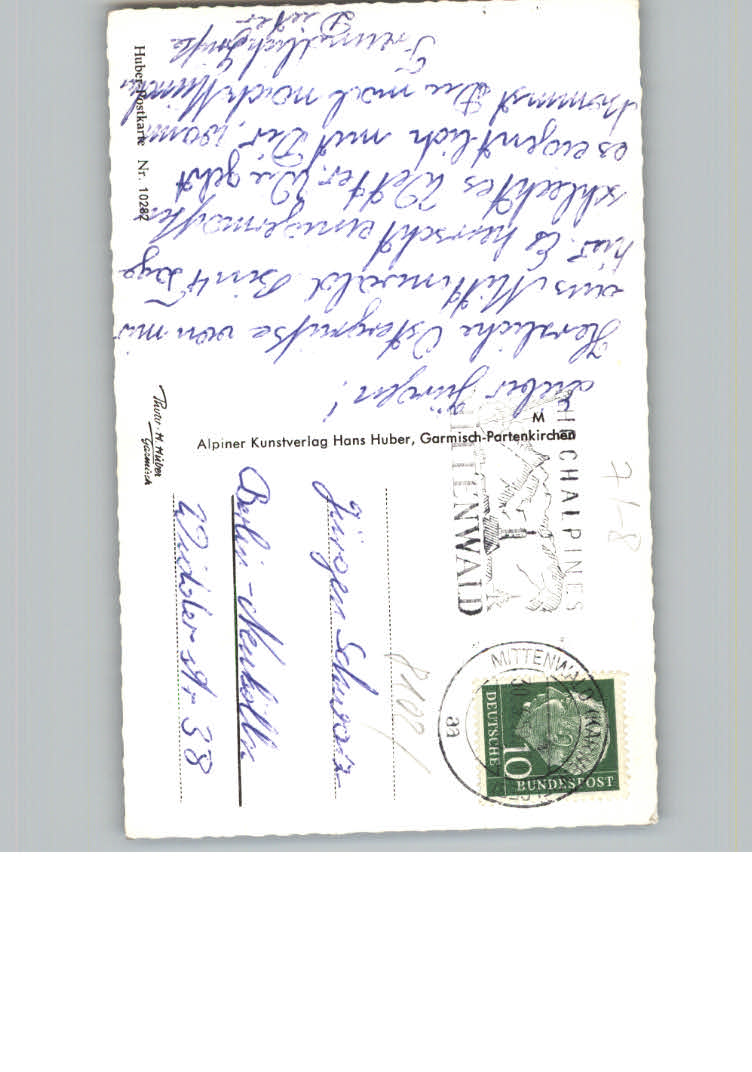 Lieber Jürgen!
Herzliche Ostergrüße von mir
aus Mittenwald. Bin 4 Tage
hier. Es herrscht einigermaßen
schlechtes Wetter. Wie geht
es eigentlich mit Dir, wann
kommst Du mal nach
Freundliche Grüße
Dieter
Huber-Postkarte Nr. 10282
Photo: H. Huber
Garmisch
M
Alpiner Kunstverlag Hans Huber, Garmisch-Partenkirchen
HOCHALPINES
MITTENWALD
71-8
MITTENWALD
30
aa
DEUTSCHE
10
BUNDESPOST
8109/
Jürgen
Berlin-Neukölln
Widderstr. 38